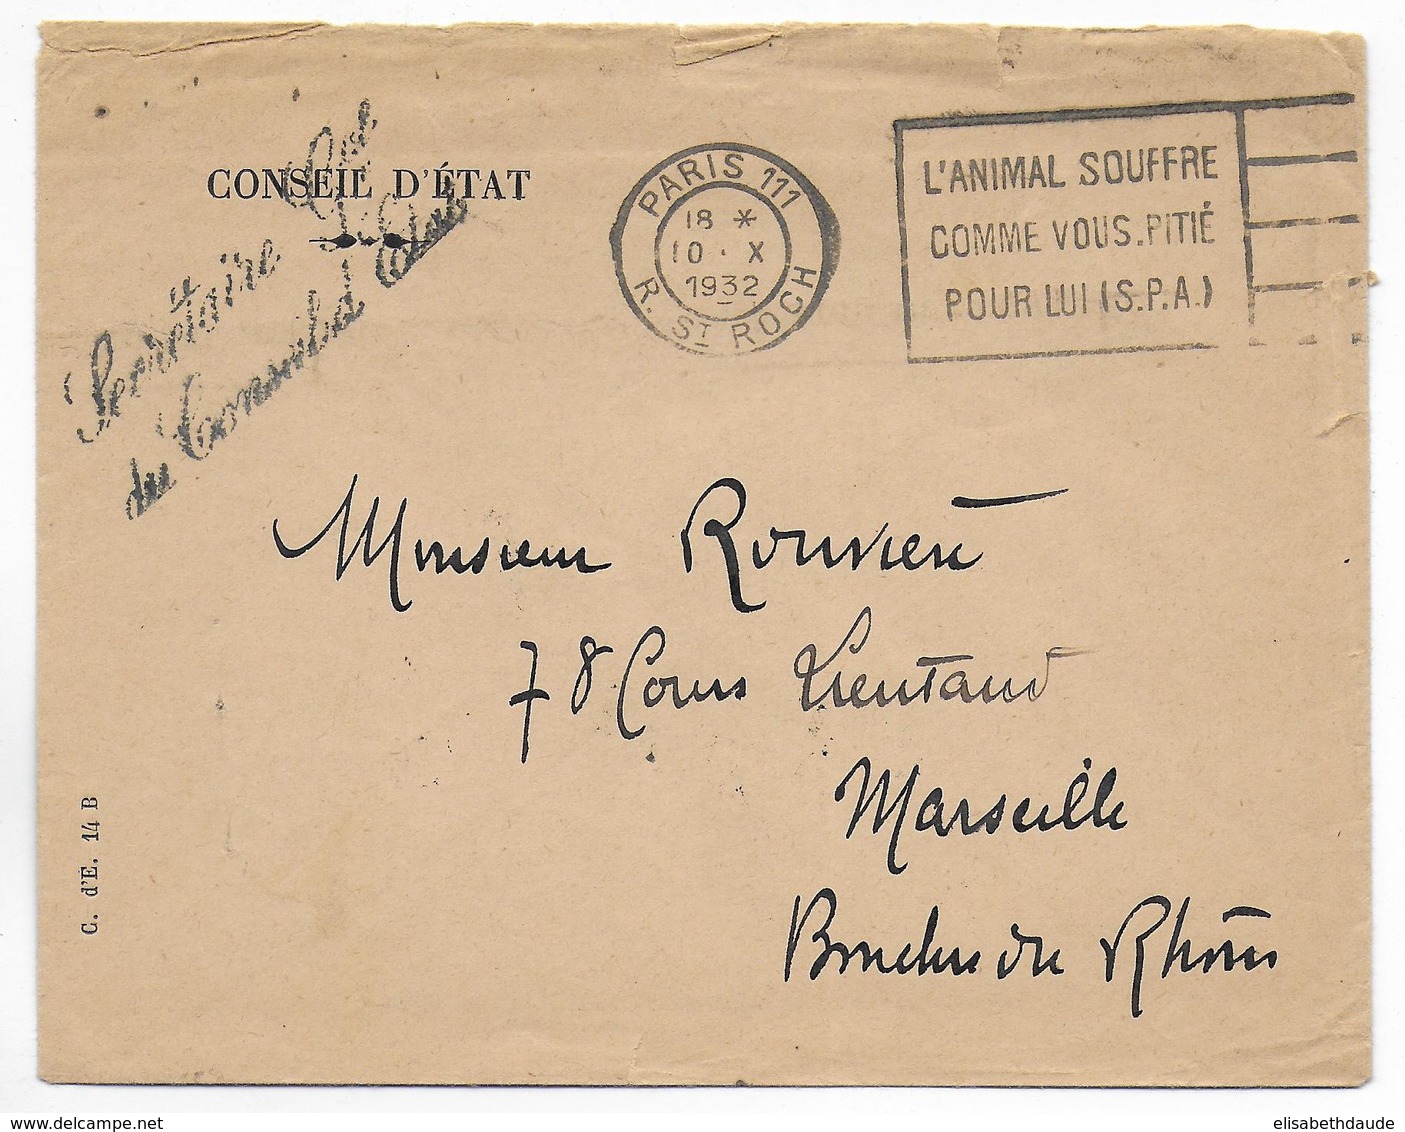 CONSEIL D'ÉTAT
Secrétaire Gal
du Conseil d'Etat
PARIS 111
18 *
10 · X
1932
R. ST ROCH
L'ANIMAL SOUFFRE
COMME VOUS.PITIÉ
POUR LUI (S.P.A.)
Monsieur Rouvière
78 Cours Lieutaud
Marseille
Bouches du Rhône
C. d'E. 14 B
www.delcampe.net
elisabethdaude